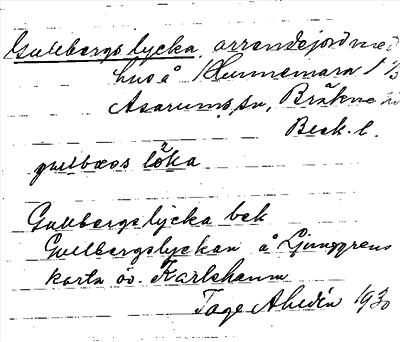 Gullbergslycka, arrendejord med
hus å Hunnemara 1 1/3
Asarums sn, Bräkne hd
Blek. l.
gulbæs lö̌ka
Gullbergslycka bek
Gullbergslyckan å Ljunggrens
karta öv. Karlshamn
Tage Ahldén 1930